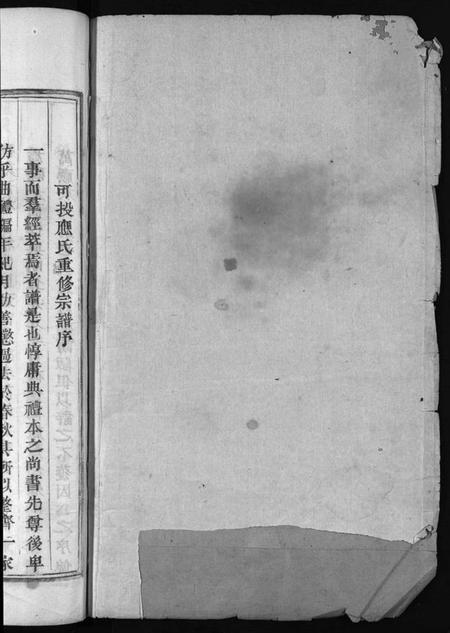 可投應氏重修宗譜序
一事而羣經萃焉者譜是也惇庸典禮本之尚書先尊後卑
仿乎曲禮編年紀月勸善懲過法於春秋其所以整齊一家